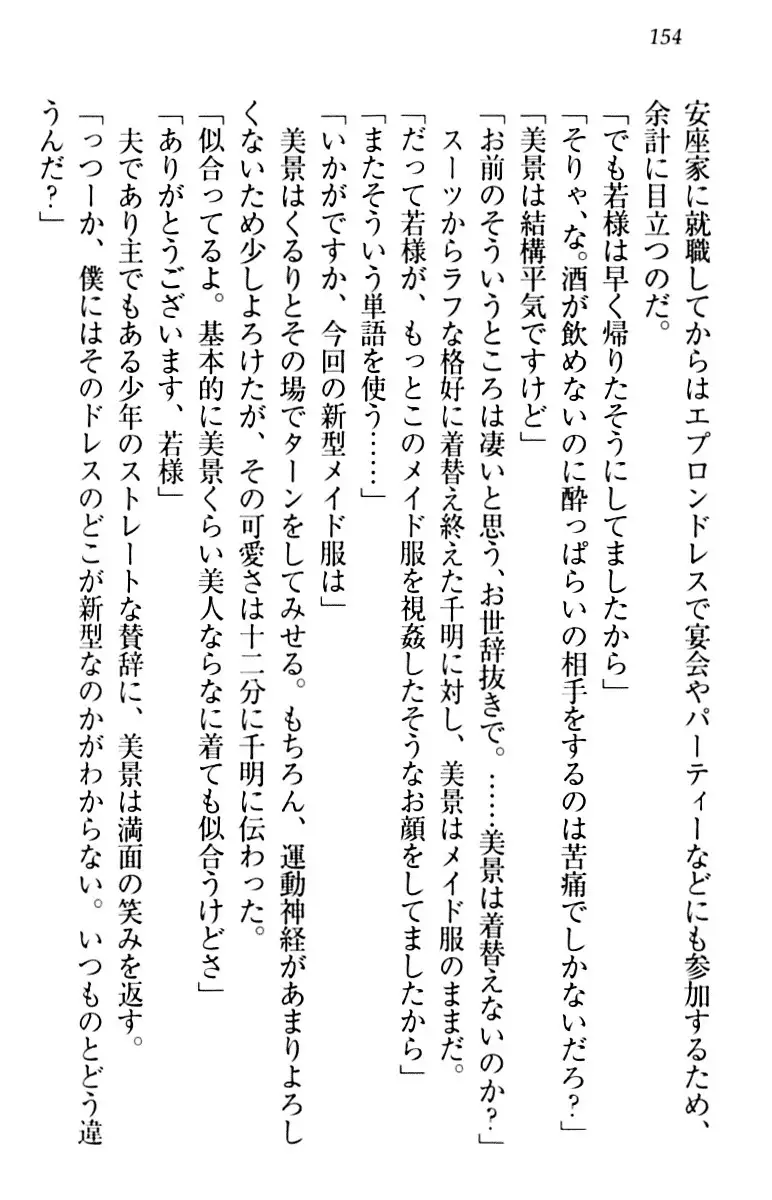 154
安座家に就職してからはエプロンドレスで宴会やパーティーなどにも参加するため、
余計に目立つのだ。
「でも若様は早く帰りたそうにしてましたから」
「そりゃ、な。酒が飲めないのに酔っぱらいの相手をするのは苦痛でしかないだろ？」
「美景は結構平気ですけど」
「お前のそういうところは凄いと思う、お世辞抜きで。……美景は着替えないのか？」
スーツからラフな格好に着替え終えた千明に対し、美景はメイド服のままだ。
「だって若様が、もっとこのメイド服を視姦したそうなお顔をしてましたから」
「またそういう単語を使う……」
「いかがですか、今回の新型メイド服は」
美景はくるりとその場でターンをしてみせる。もちろん、運動神経があまりよろし
くないため少しよろけたが、その可愛さは十二分に千明に伝わった。
「似合ってるよ。基本的に美景くらい美人ならなに着ても似合うけどさ」
「ありがとうございます、若様」
夫であり主でもある少年のストレートな賛辞に、美景は満面の笑みを返す。
「っつーか、僕にはそのドレスのどこが新型なのかがわからない。いつものとどう違
うんだ？」